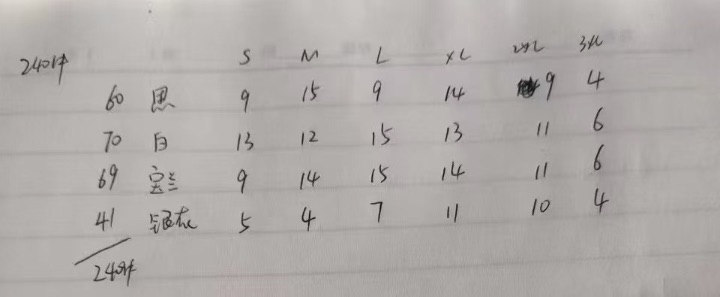 240件 S M L XL 2XL 3XL
60 黑 9 15 9 14 9 4
70 白 13 12 15 13 11 6
69 宝兰 9 14 15 14 11 6
41 银灰 5 4 7 11 10 4
240件